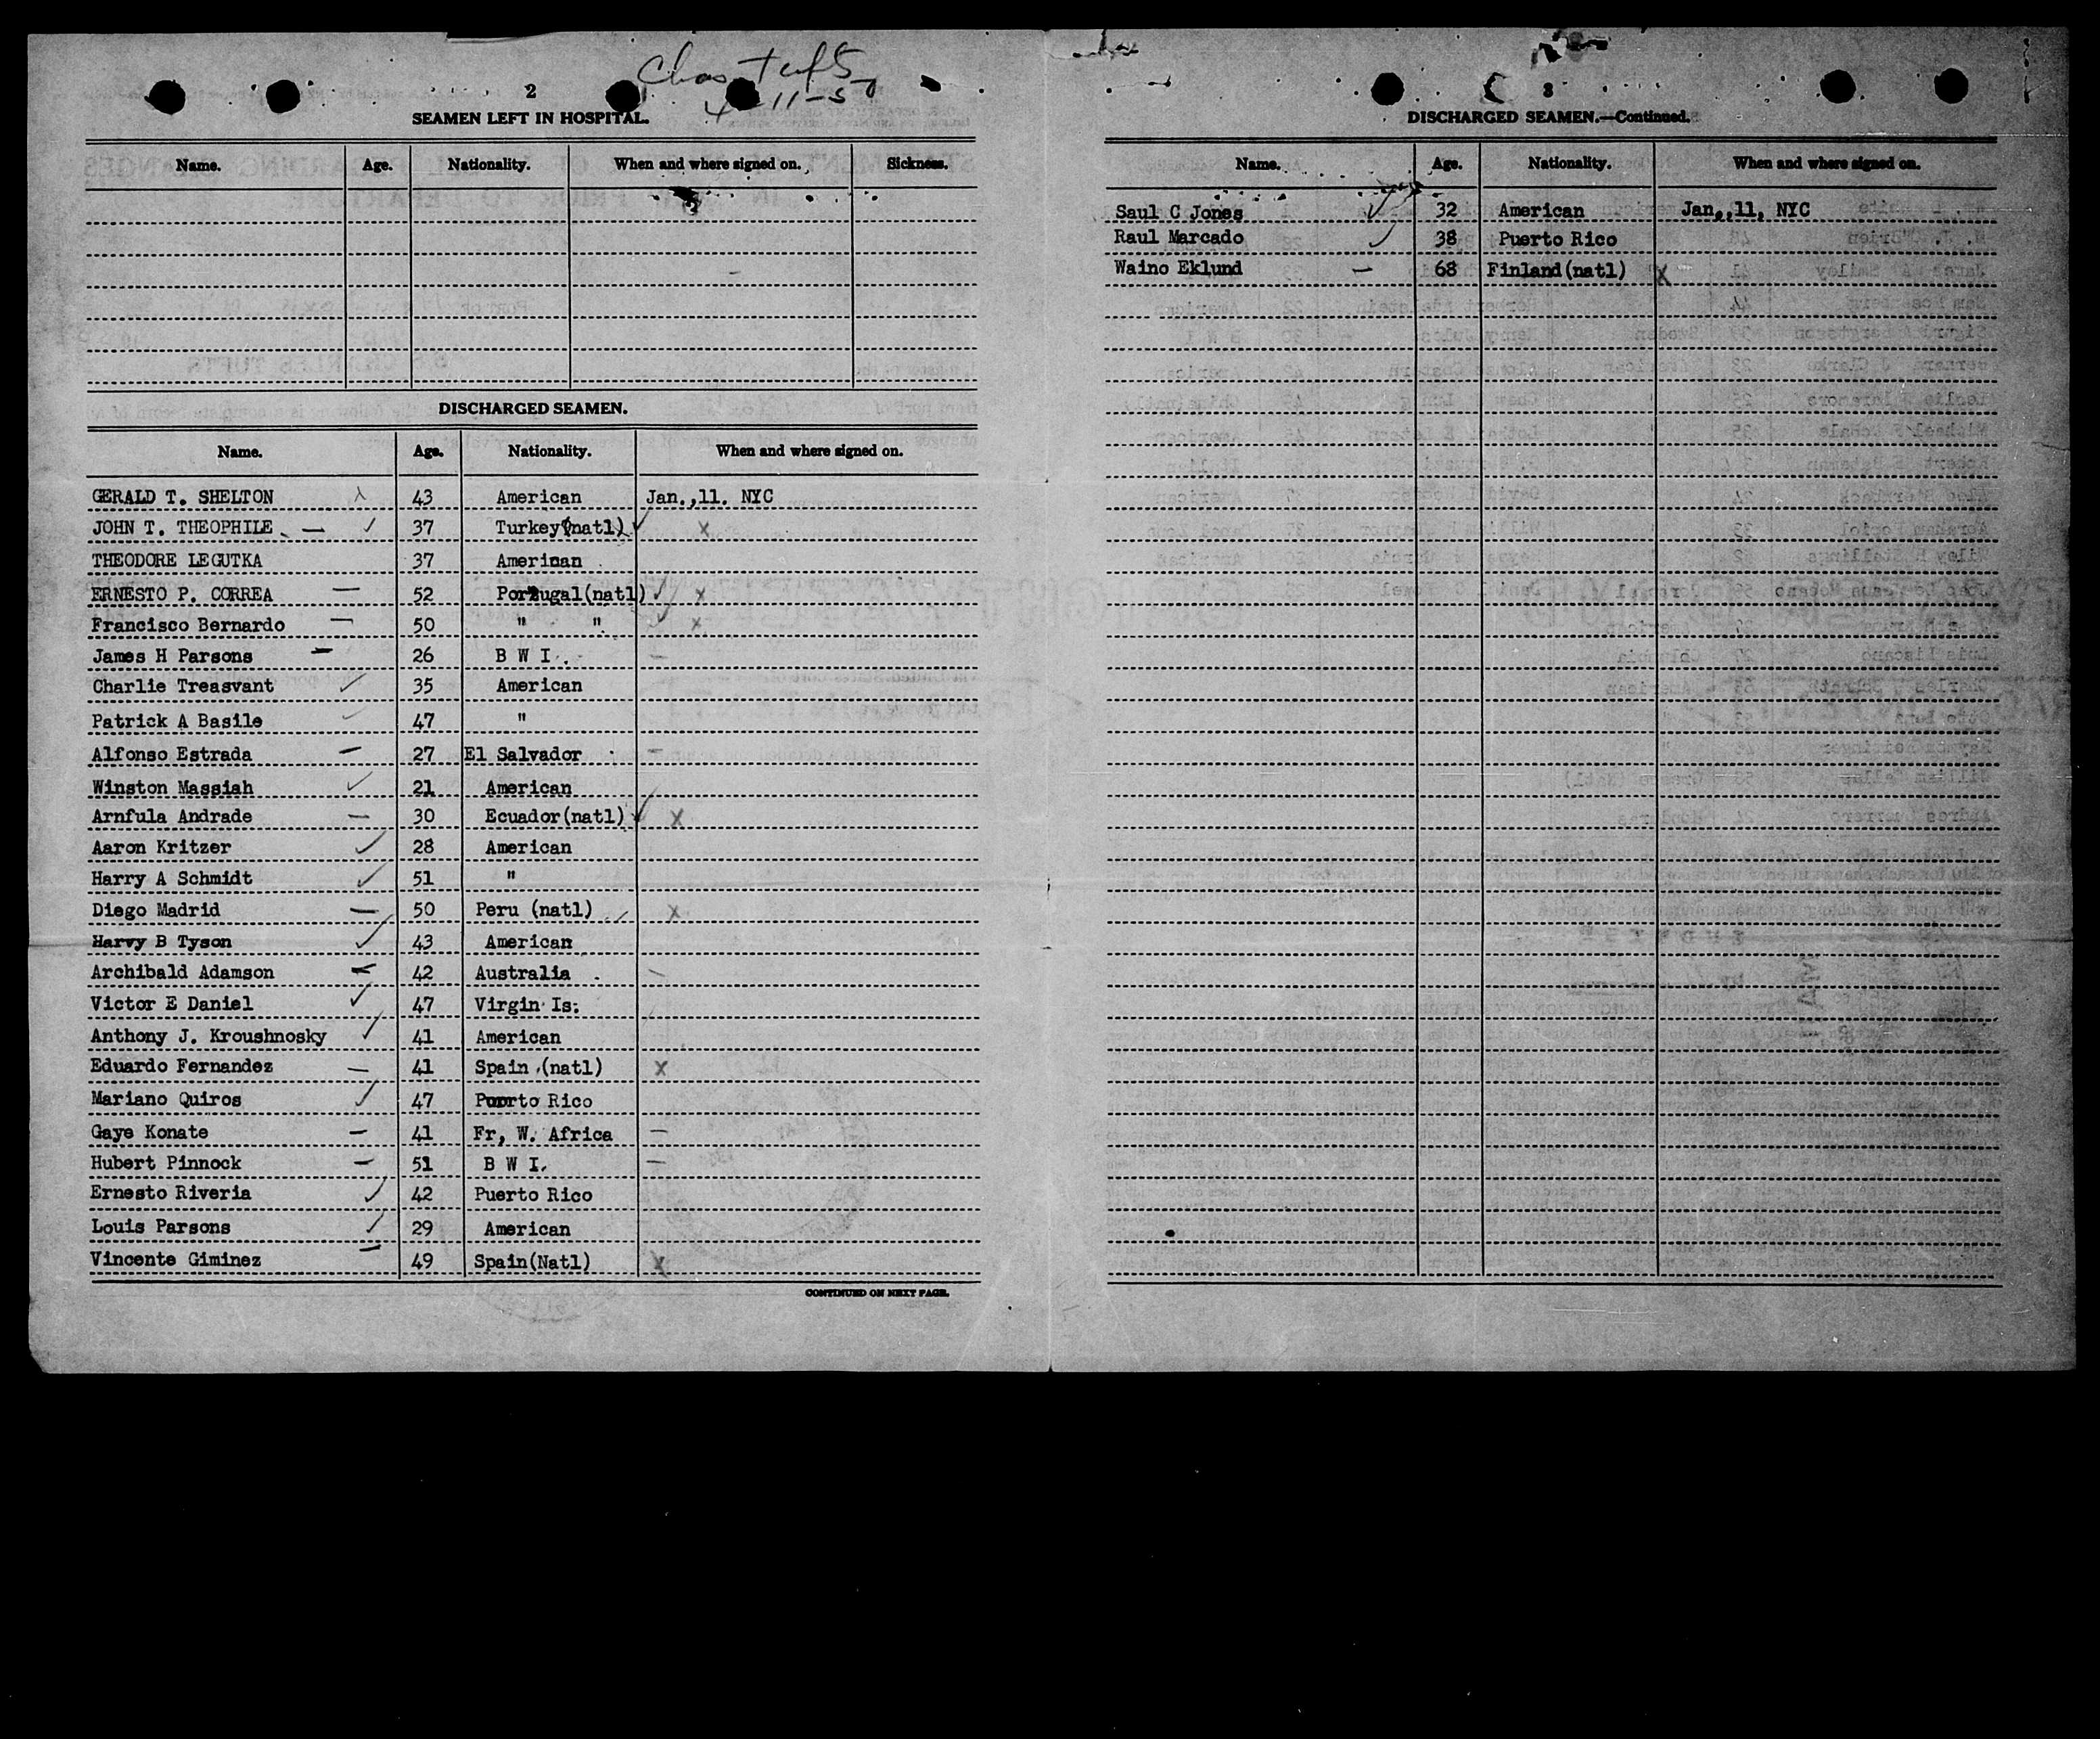 Chas Tufts
4-11-50
2
SEAMEN LEFT IN HOSPITAL.
Name. Age. Nationality. When and where signed on. Sickness.
DISCHARGED SEAMEN.
Name. Age. Nationality. When and where signed on.
GERALD T. SHELTON 43 American Jan.,11. NYC
JOHN T. THEOPHILE 37 Turkey(natl) x
THEODORE LEGUTKA 37 American
ERNESTO P. CORREA 52 Portugal(natl) x
Francisco Bernardo 50 " " x
James H Parsons 26 B W I.
Charlie Treasvant 35 American
Patrick A Basile 47 "
Alfonso Estrada 27 El Salvador
Winston Massiah 21 American
Arnfula Andrade 30 Ecuador(natl) x
Aaron Kritzer 28 American
Harry A Schmidt 51 "
Diego Madrid 50 Peru (natl) x
Harvy B Tyson 43 American
Archibald Adamson 42 Australia
Victor E Daniel 47 Virgin Is.
Anthony J. Kroushnosky 41 American
Eduardo Fernandez 41 Spain (natl) x
Mariano Quiros 47 Puerto Rico
Gaye Konate 41 Fr, W. Africa
Hubert Pinnock 51 B W I.
Ernesto Riveria 42 Puerto Rico
Louis Parsons 29 American
Vincente Giminez 49 Spain(Natl) x
CONTINUED ON NEXT PAGE.
3
DISCHARGED SEAMEN.—Continued.
Name. Age. Nationality. When and where signed on.
Saul C Jones 32 American Jan.,11, NYC
Raul Marcado 38 Puerto Rico
Waino Eklund 68 Finland(natl) x